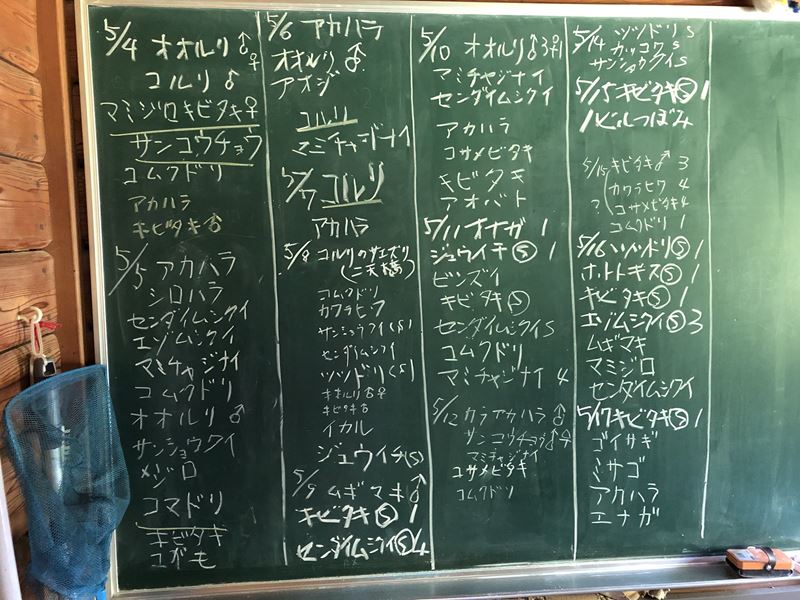 5/4 オオルリ ♂♀
コルリ ♂
マミジロキビタキ ♀
サンコウチョウ
コムクドリ
アカハラ
キビタキ ♂
5/5 アカハラ
シロハラ
センダイムシクイ
エゾムシクイ
マミチャジナイ
コムクドリ
オオルリ ♂
サンショウクイ
メジロ
コマドリ
キビタキ
コガモ
5/6 アカハラ
オオルリ ♂
アオジ
コルリ
マミチャジナイ
5/7 コルリ
アカハラ
5/8 コルリのサエズリ
コムクドリ
カワラヒワ
サンショウクイ(S)
センダイムシクイ
ツツドリ(S)
オオルリ ♂♀
キビタキ ♂
イカル
ジュウイチ(S)
5/9 ムギマキ ♂
キビタキ Ⓢ 1
センダイムシクイ Ⓢ 4
5/10 オオルリ ♂3♀1
アミチャジナイ
センダイムシクイ
アカハラ
コサメビタキ
キビタキ
アオバト
5/11 オナガ 1
ジュウイチ Ⓢ 1
ビンズイ
キビタキ Ⓢ
センダイムシクイ S
コムクドリ
マミチャジナイ 4
5/12 カラアカハラ ♂
サンコウチョウ ♂♀
マミチャジナイ
コサメビタキ
コムクドリ
5/14 ツツドリ S
カッコウ S
サンショウクイ S
5/15 キビタキ Ⓢ 1
5/15 キビタキ ♂ 3
カワラヒワ 4
? コサメビタキ 4
コムクドリ 1
5/16 ツツドリ Ⓢ 1
ホトトギス Ⓢ 1
キビタキ Ⓢ 1
エゾムシクイ Ⓢ 3
ムギマキ
マミジロ
センダイムシクイ
5/17 キビタキ Ⓢ 1
ゴイサギ
ミサゴ
アカハラ
エナガ